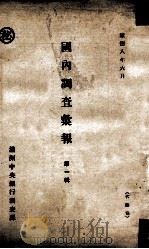 康德八年六月
國內調查彙報
第一輯
秘
滿洲中央銀行調查課